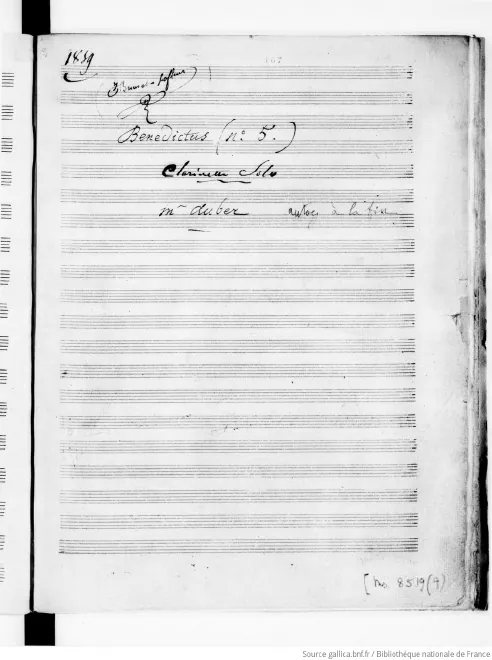 1859
Benedictus (nº 5.)
Clarinette Solo
mr Auber autog. à la fin
[Ms. 8519 (9)
Source gallica.bnf.fr / Bibliothèque nationale de France